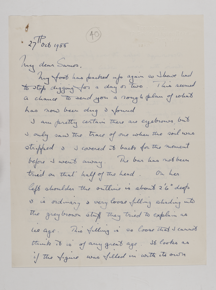 27th Oct 1955
My dear
My foot has packed up again so I have had
to stop digging for a day or two. This
a chance to send you a rough plan of what
has now been dug & found
I am pretty certain there are eyebrows but
I only saw the trace of one when the soil was
stripped & I covered it back for the moment
before I went away. The bar has not been
tried on that half of the head. On her
left shoulder the outline is about 2½" deep
& is ordinary a very loose filling shading into
the grey brown stuff they tried to explain as
ice age. This filling is so loose that I cannot
think it is of any great age. It looks as
if the figure was filled in with its own